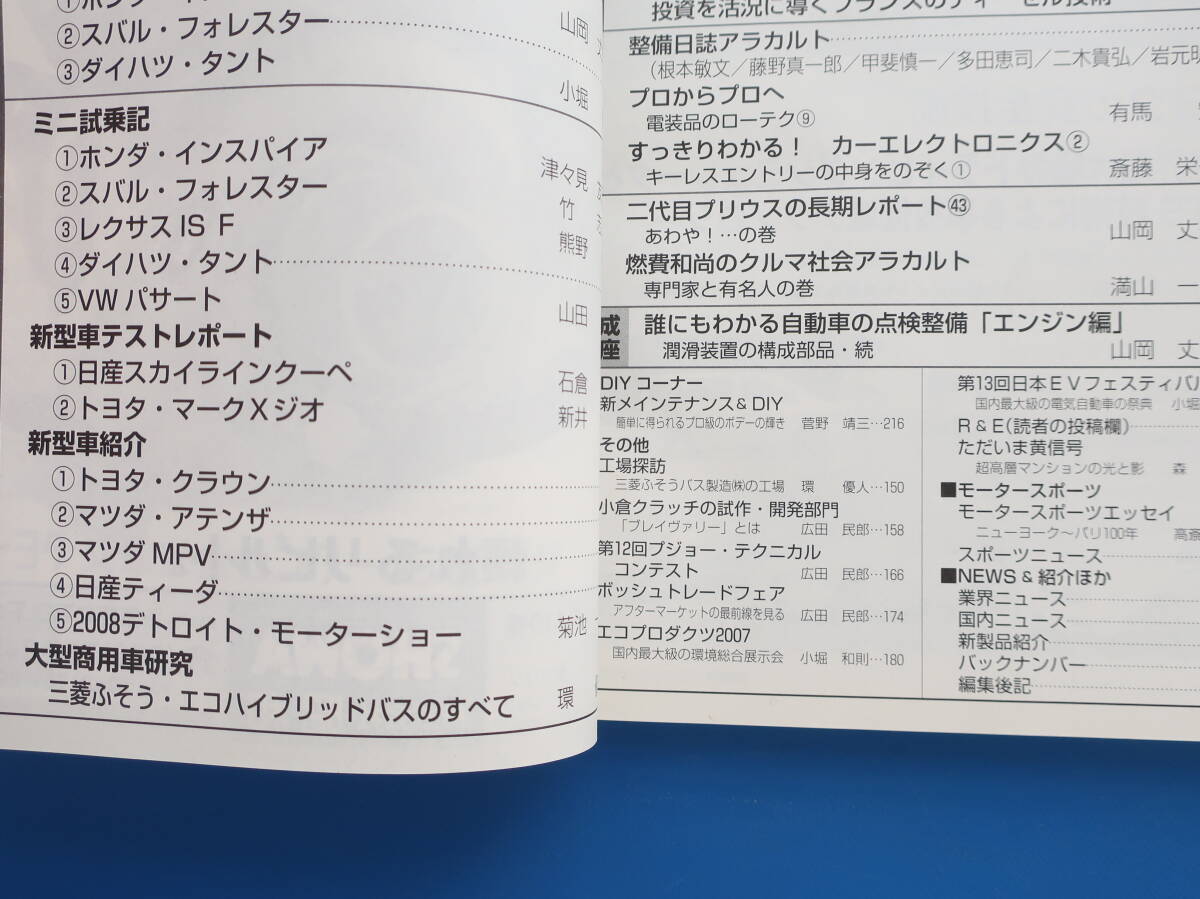 ②スバル・フォレスター 山岡
③ダイハツ・タント 小堀
ミニ試乗記
①ホンダ・インスパイア 津々見
②スバル・フォレスター 竹
③レクサスIS F 熊野
④ダイハツ・タント
⑤VWパサート 山田
新型車テストレポート
①日産スカイラインクーペ 石倉
②トヨタ・マークXジオ 新井
新型車紹介
①トヨタ・クラウン
②マツダ・アテンザ
③マツダMPV
④日産ティーダ
⑤2008デトロイト・モーターショー 菊池
大型商用車研究
三菱ふそう・エコハイブリッドバスのすべて 環
投資を活況に導くフランスのディーゼル技術
整備日誌アラカルト
(根本敏文/藤野真一郎/甲斐慎一/多田恵司/二木貴弘/岩元明
プロからプロへ
電装品のローテク⑨ 有馬
すっきりわかる! カーエレクトロニクス②
キーレスエントリーの中身をのぞく① 斎藤 栄
二代目プリウスの長期レポート㊸
あわや!…の巻 山岡 丈
燃費和尚のクルマ社会アラカルト
専門家と有名人の巻 満山 一
成座
誰にもわかる自動車の点検整備「エンジン編」
潤滑装置の構成部品・続 山岡 丈
DIYコーナー
新メインテナンス&DIY
簡単に得られるプロ級のボデーの輝き 菅野 靖三…216
その他
工場探訪
三菱ふそうバス製造㈱の工場 環 優人…150
小倉クラッチの試作・開発部門
「ブレイヴァリー」とは 広田 民郎…158
第12回プジョー・テクニカル
コンテスト 広田 民郎…166
ボッシュトレードフェア
アフターマーケットの最前線を見る 広田 民郎…174
エコプロダクツ2007
国内最大級の環境総合展示会 小堀 和則…180
第13回日本EVフェスティバル
国内最大級の電気自動車の祭典 小堀
R&E(読者の投稿欄)
ただいま黄信号
超高層マンションの光と影 森
■モータースポーツ
モータースポーツエッセイ
ニューヨーク〜パリ100年 高斎
スポーツニュース
■NEWS&紹介ほか
業界ニュース
国内ニュース
新製品紹介
バックナンバー
編集後記